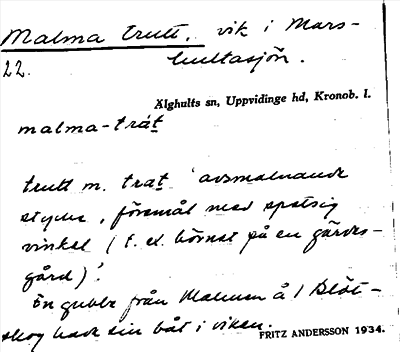 Malma trutt, vik i Mars-
22. hultasjön.
Älghults sn, Uppvidinge hd, Kronob. l.
malma-trát
trutt m. trat 'avsmalnande
stycke, föremål med spetsig
vinkel (t. ex. hörnet på en gärdes-
gård)'.
En gubbe från Malmen å 1 Blöt-
skog hade sin båt i viken.
FRITZ ANDERSSON 1934.